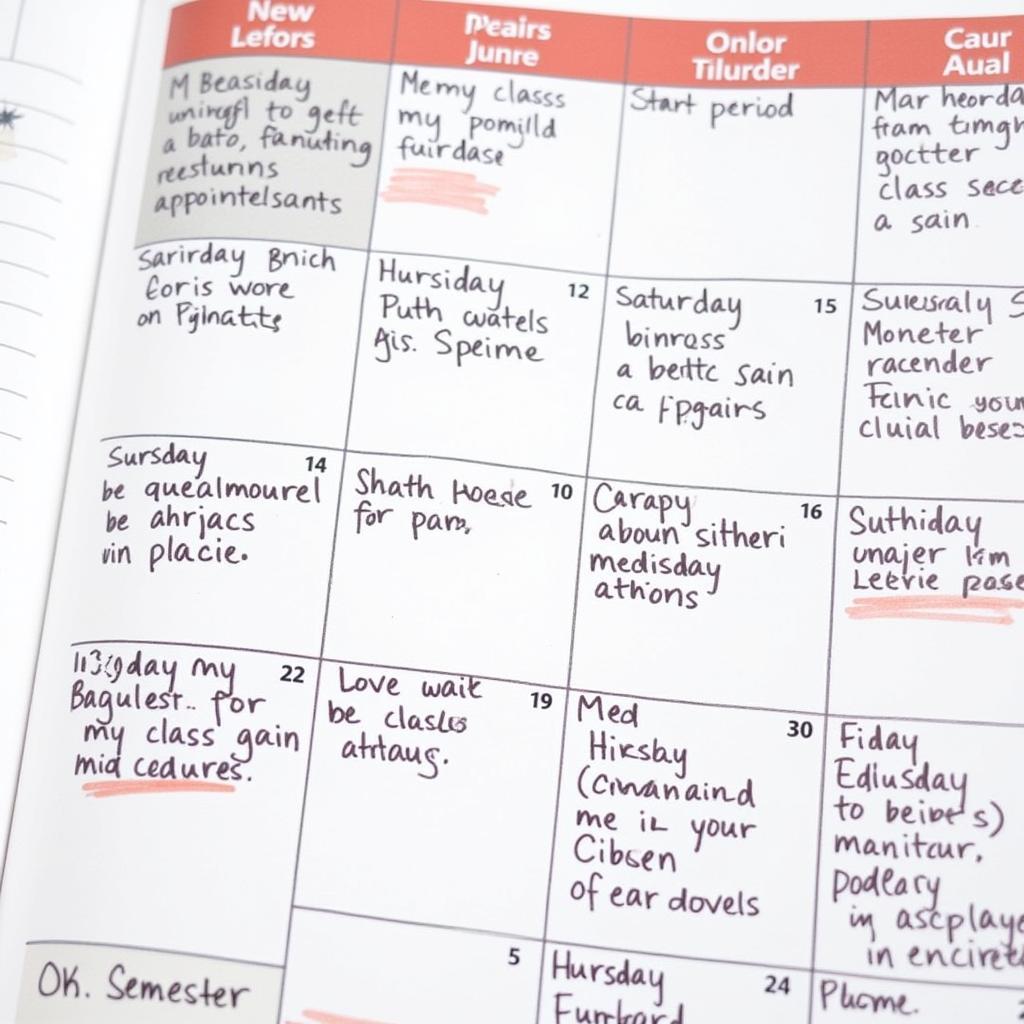 New
Lefors
Pleairs
Junre
Onlor
Tilurder
Caur
Aual
M Beasiday
to geft
a bato, fanuting
reestunns
appointelsants
Memy classs
my pomjlld
fuirdase
Start period
Mar heorda
fram timgh
goctter
class sece
a sain
Sarirday Bnich
Eoris wore
on
Hursiday 12
Puth cwatels
Ajis. Speime
Saturday 15
binrass
a bertc sain
ca
Suresraly S
Moneter
racender
Fcinic you
cluial bese
Sursday 14
be quealmourel
be ahrjacs
vin placie.
Shath Hoese 10
for pam,
Carapy 16
aboun sitheri
medisday
athions
Suthiday
unajer
Leevie pase
my 22
Bagulest.. for
my class gain
mid cedures.
Love wait 19
be
attaug.
Med 30
Hiksby
(Cinwanaind
me in your
Cibsen
of ear dovels
Fiday
Ediusday
to beibes)
manitcur.
podlary
in ascplaye
in encirete
OK. Semester
5
Hursday 24
Funkard
Plucme.